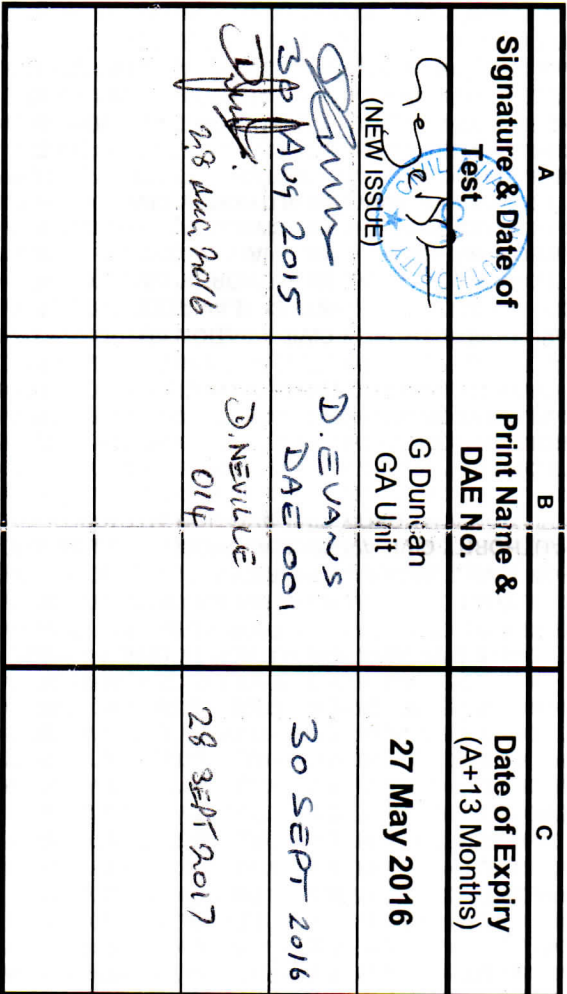 A
B
C
Signature & Date of
Test
Print Name &
DAE No.
Date of Expiry
(A+13 Months)
CIVIL AVIATION AUTHORITY
(NEW ISSUE)
G Duncan
GA Unit
27 May 2016
30 Aug 2015
D. EVANS
DAE 001
30 SEPT 2016
28 AUG 2016
D. NEVILLE
014
28 SEPT 2017